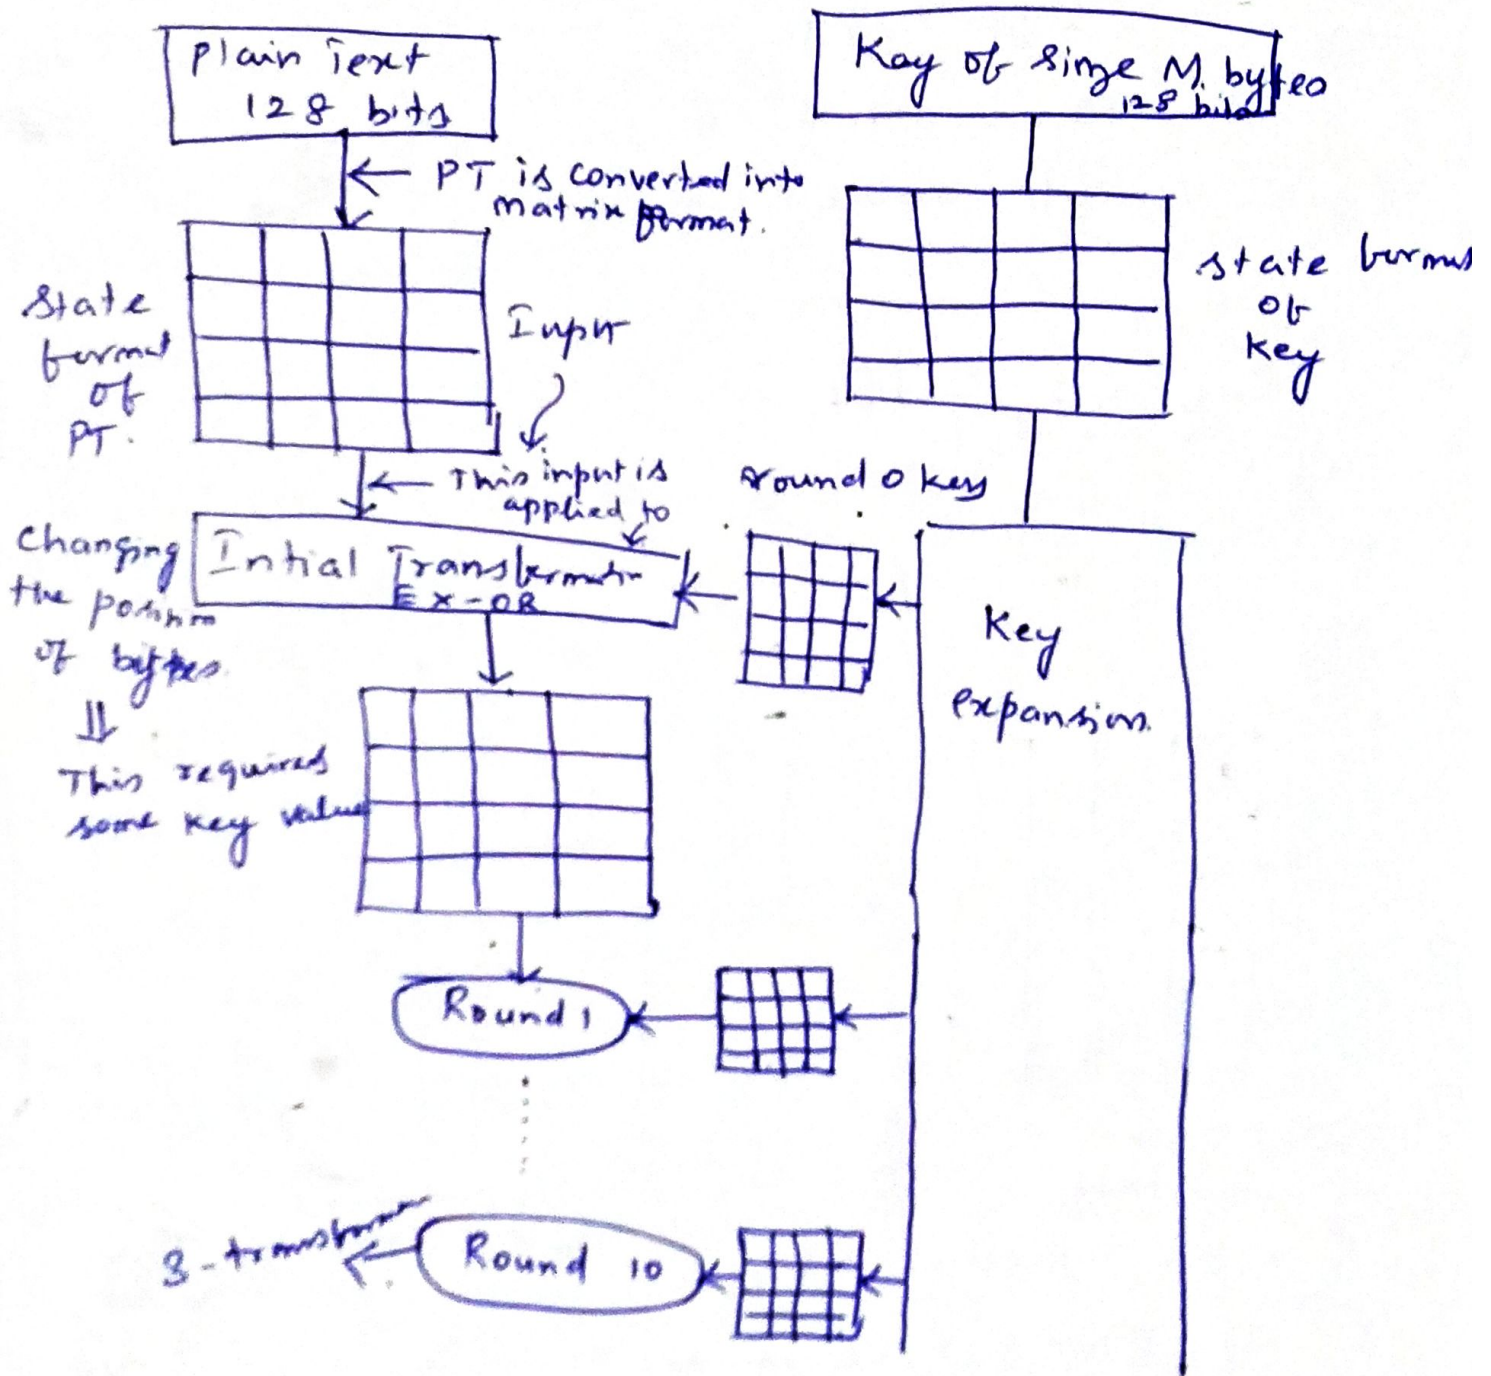 Plain Text
128 bits
Key of sinze M. bytes
128 bits
PT is converted into
matrix format.
State
format
of
PT.
Input
state format
of
key
This input is
applied to
round 0 key
Changing
the position
of bytes
⇓
This required
some key value
Intial Transformation
EX-OR
Key
expansion
Round 1
Round 10
3-transformer